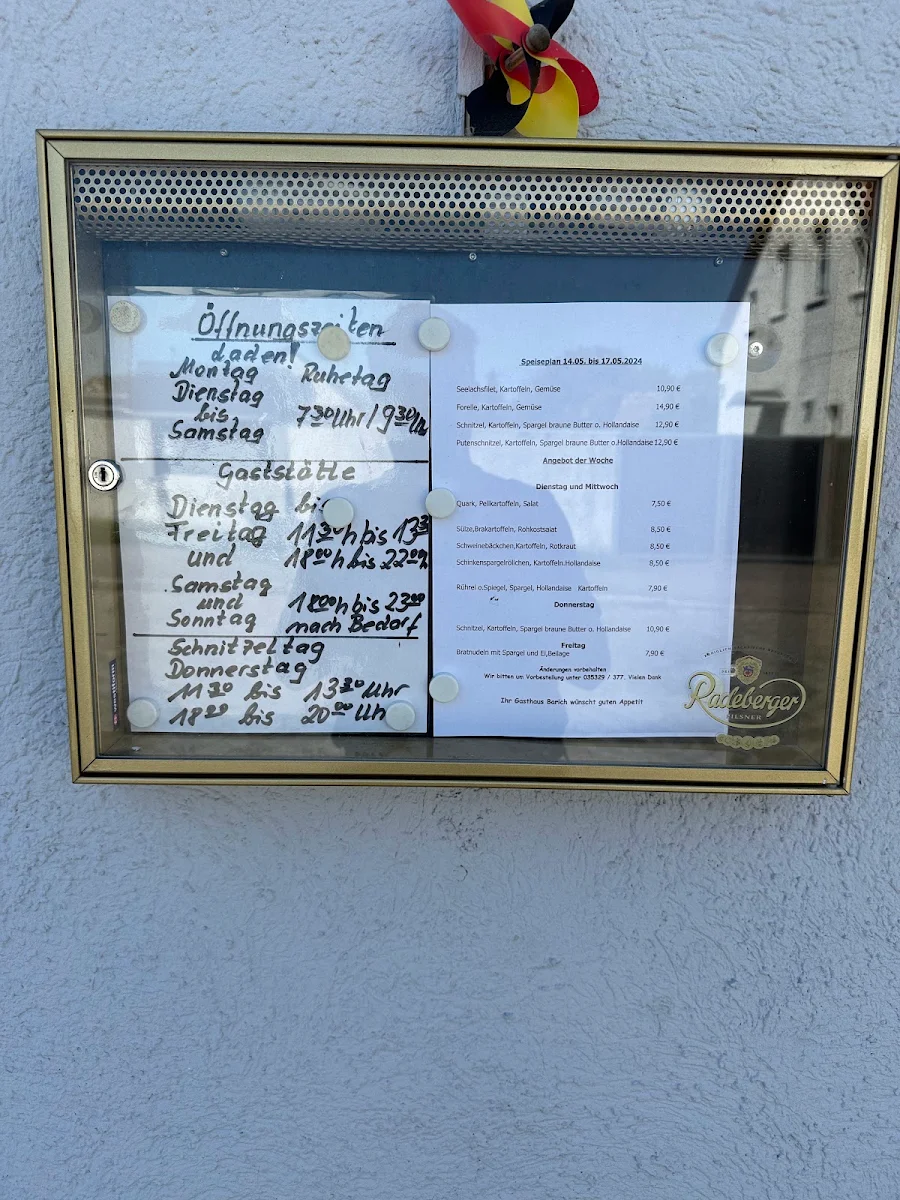 Öffnungszeiten
Laden!
Montag Ruhetag
Dienstag
bis 7³⁰ Uhr / 9³⁰ Uh
Samstag
Gaststätte
Dienstag bis
Freitag 11³⁰h bis 13³
und 18⁰⁰h bis 22⁰⁰h
Samstag
und bis 23⁰⁰
Sonntag nach Bedarf
Schnitzeltag
Donnerstag
11³⁰ bis 13³⁰ Uhr
18⁰⁰ bis 20⁰⁰ Uh
Speiseplan 14.05. bis 17.05.2024
Seelachsfilet, Kartoffeln, Gemüse 10,90 €
Forelle, Kartoffeln, Gemüse 14,90 €
Schnitzel, Kartoffeln, Spargel braune Butter o. Hollandaise 12,90 €
Putenschnitzel, Kartoffeln, Spargel braune Butter o.Hollandaise 12,90 €
Angebot der Woche
Dienstag und Mittwoch
Quark, Pellkartoffeln, Salat 7,50 €
Sülze,Brakartoffeln, Rohkostsalat 8,50 €
Schweinebäckchen,Kartoffeln, Rotkraut 8,50 €
Schinkenspargelrölichen, Kartoffeln.Hollandaise 8,50 €
Rührei o.Spiegel, Spargel, Hollandaise Kartoffeln 7,90 €
Donnerstag
Schnitzel, Kartoffeln, Spargel braune Butter o. Hollandaise 10,90 €
Freitag
Bratnudeln mit Spargel und Ei,Beilage 7,90 €
Änderungen vorbehalten
Wir bitten um Vorbestellung unter 035329 / 377. Vielen Dank
Ihr Gasthaus Barich wünscht guten Appetit
Radeberger
PILSNER